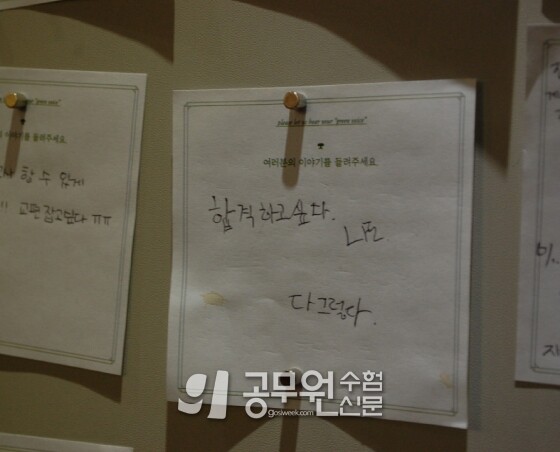 "green voice"
이야기를 들려주세요
할 수 있게
!! 교편 잡고싶다 ㅠㅠ
please let us hear your "green voice"
여러분의 이야기를 들려주세요
합격하고싶다.
나도
다 그렇다.
공무원수험신문
gosiweek.com